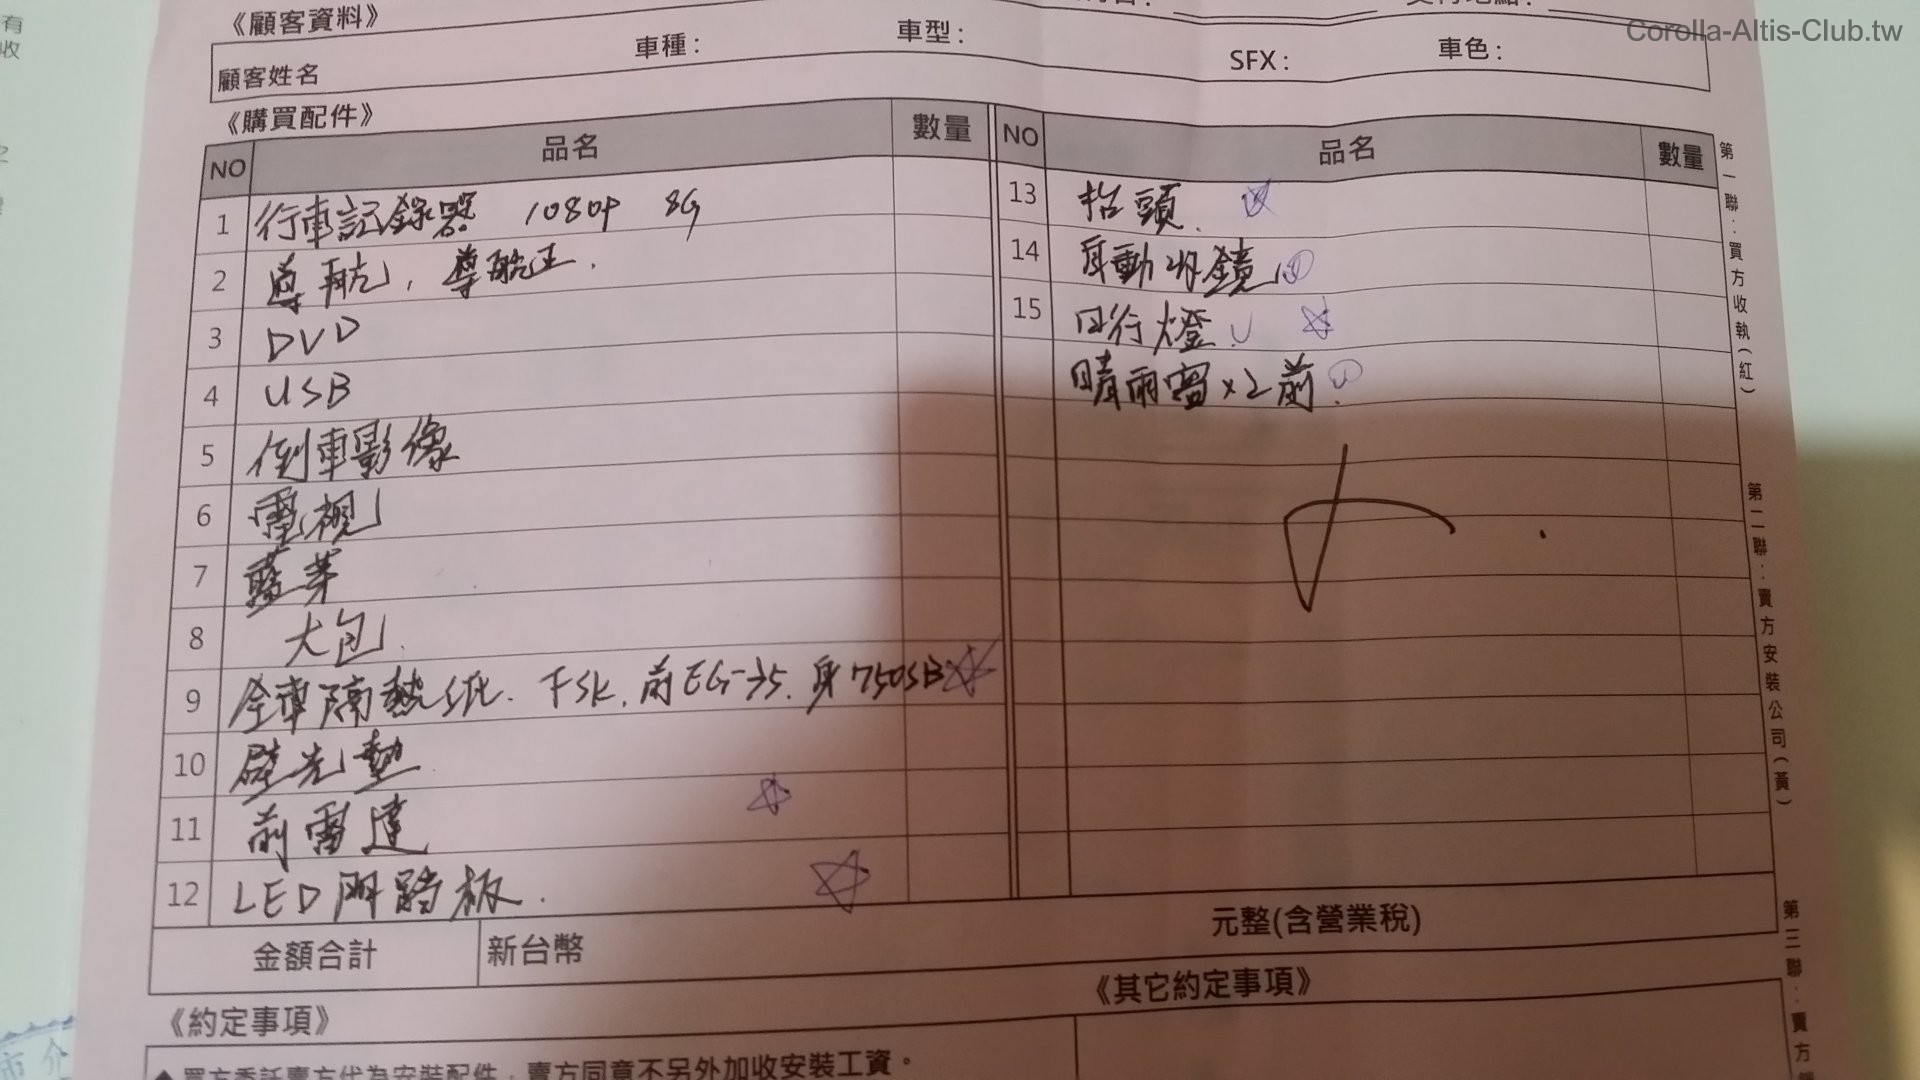 有
收
Corolla-Altis-Club.tw
《顧客資料》
顧客姓名 車種： 車型： SFX： 車色：
《購買配件》
NO 品名 數量 NO 品名 數量
1 行車記錄器 1080P 8G
2 導航，導航王.
3 DVD
4 USB
5 倒車影像
6 電視
7 藍芽
8 大包.
9 全車隔熱紙. FSK. 前EG-35. 身750SB
10 避光墊
11 前雷達
12 LED門踏板.
13 抬頭.
14 自動收鏡
15 日行燈.
晴雨窗x2前.
金額合計 新台幣 元整(含營業稅)
《約定事項》 《其它約定事項》
◆買方委託賣方代為安裝配件，賣方同意不另外加收安裝工資。
第一聯：買方收執(紅)
第二聯：賣方安裝公司(黃)
第三聯：賣方